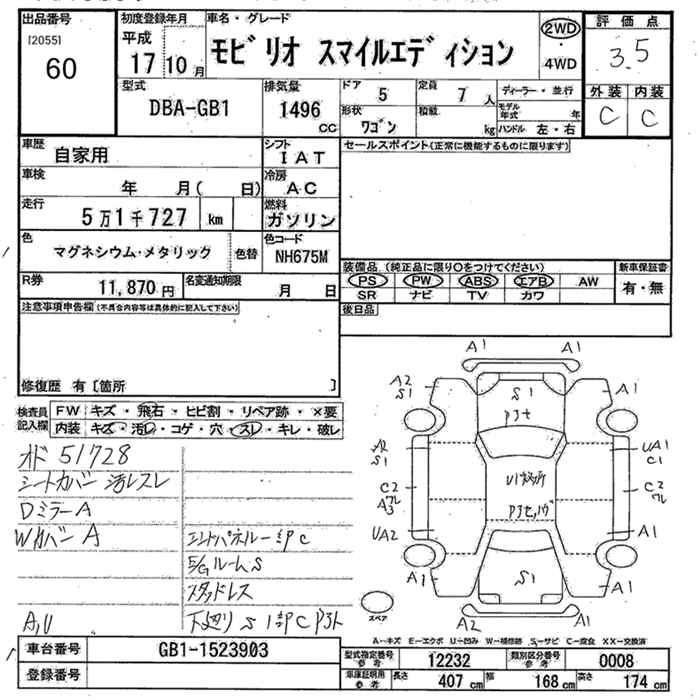 出品番号
[2055]
60
初度登録年月
平成
17 10 月
車名・グレード
モビリオ スマイルエディション
2WD
・
4WD
評価点
3.5
外装 内装
C C
型式
DBA-GB1
排気量
1496
CC
ドア 5
定員 7 人
形状 ワゴン
積載 kg
ディーラー・並行
モデル年式 年
ハンドル 左・右
車歴
自家用
シフト
IAT
セールスポイント(正常に機能するものに限ります)
車検
年 月( 日)
冷房
AC
走行
5万1千727 km
燃料
ガソリン
色
マグネシウム・メタリック
色替
色コード
NH675M
R券
11,870 円
名変通知期限
月 日
装備品 (純正品に限り○をつけてください)
PS PW ABS エアB AW
SR ナビ TV カワ
新車保証書
有・無
後日品
注意事項申告欄(不具合内容等は具体的に記入して下さい)
修復歴 有〔箇所 〕
検査員記入欄
FW キズ・飛石・ヒビ割・リペア跡・×要
内装 キズ・汚レ・コゲ・穴・スレ・キレ・破レ
オド 51728
シートカバー 汚レスレ
DミラーA
WカバーA
E/GルームS
スタッドレス
A,U
A1 A1
A2
S1
S1
A1
A2
S1
UA1
C1
C2
ワレ
A3
C2
ワレ
UA2
A1
A1
S1
A1
A2 A1
スペア
A-キズ E-エクボ U-凹み W-補修跡 S-サビ C-腐食 XX-交換済
車台番号
GB1-1523903
登録番号
型式指定番号
参考
12232
類別区分番号
参考
0008
車庫証明用
参考
長さ 407 cm
幅 168 cm
高さ 174 cm